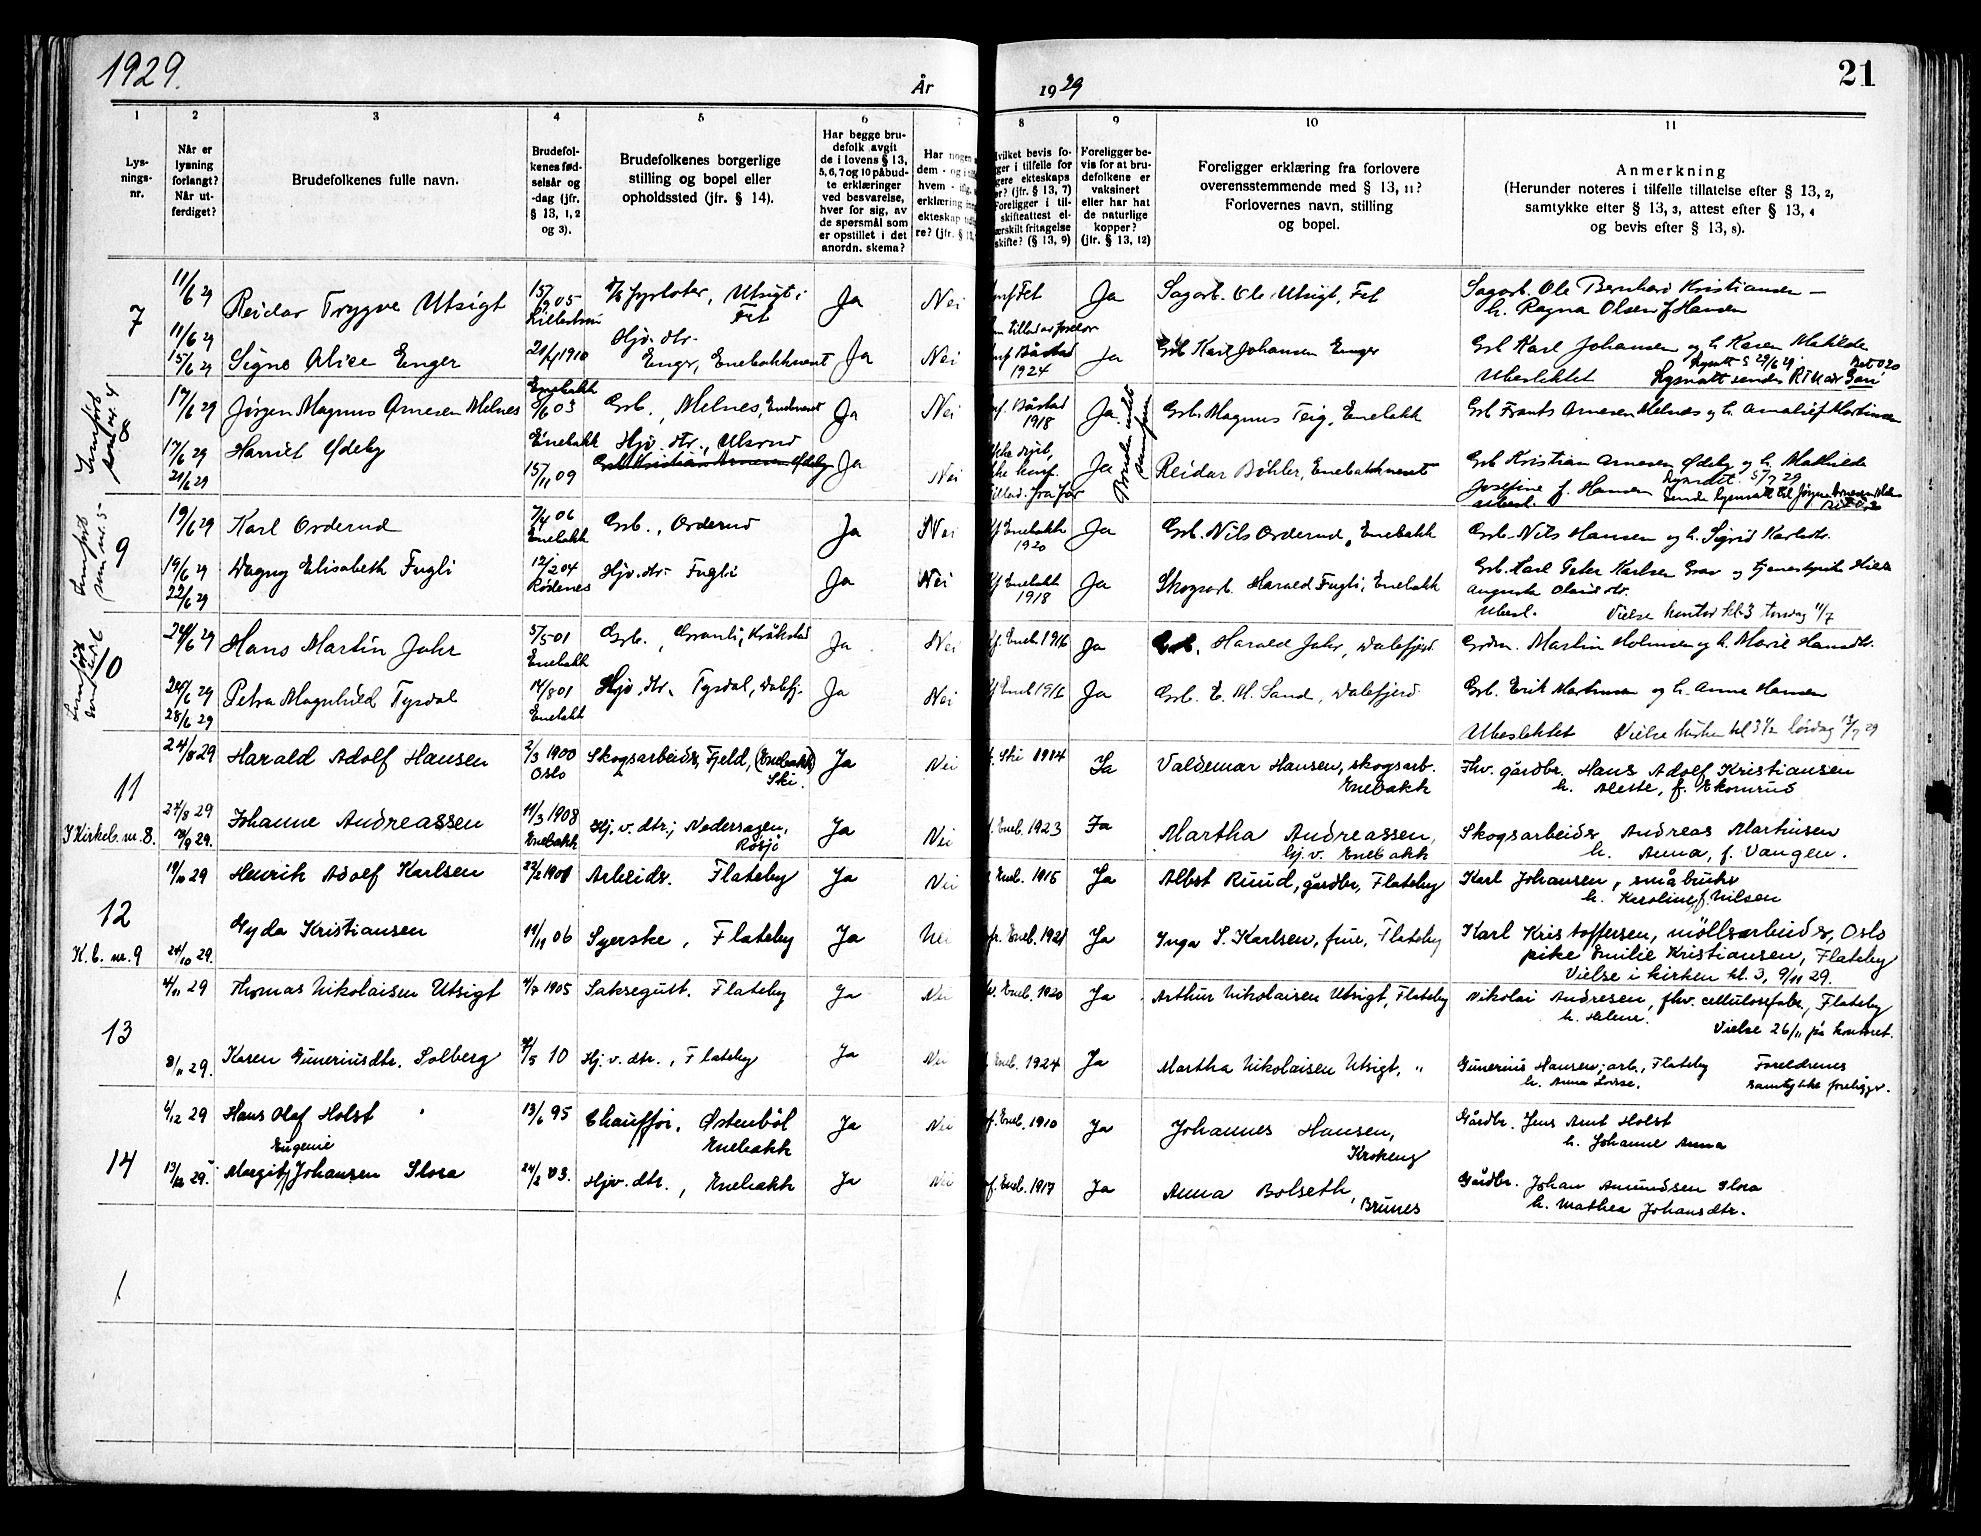 1929.
År
19 29
21
1
2
3
4
5
6
7
8
9
10
11
Lys-
nings-
nr.
Når er
lysning
forlangt?
Når ut-
ferdiget?
Brudefolkenes fulle navn.
Brudefol-
kenes fød-
selsår og
-dag (jfr.
§ 13, 1, 2
og 3).
Brudefolkenes borgerlige
stilling og bopel eller
opholdssted (jfr. § 14).
Har begge bru-
defolk avgit
de i lovens § 13,
5, 6, 7 og 10 påbud-
te erklæringer
ved besvarelse,
hver for sig, av
de spørsmål som
er opstillet i det
anordn. skema?
Har nogen
dem - og i
hvem -
erklæring
ekteskap
re? (jfr. § 13,
Hvilket bevis fo-
ger i tilfelle for
gere ekteskaps
? (jfr. § 13, 7)
Foreligger i til-
skifteattest el-
ærskilt fritagelse
skifte? (§ 13, 9)
Foreligger be-
vis for at bru-
defolkene er
vaksinert
eller har hat
de naturlige
kopper?
(jfr. § 13, 12)
Foreligger erklæring fra forlovere
overensstemmende med § 13, 11?
Forlovernes navn, stilling
og bopel.
Anmerkning
(Herunder noteres i tilfelle tillatelse efter § 13, 2,
samtykke efter § 13, 3, attest efter § 13, 4
og bevis efter § 13, 8).
7
11/6 29 Reidar Trygve Utsigt 15/ 905 fyrbøter, Utsigt i Ja Nei Fet Ja Sagarb. Ole Utsigt, Fet Sagarb. Ole Bernhard Kristiansen
Lillestrøm Fet h. Ragna Olsen f. Hansen
11/6 29
15/6 29 Signe Alice Enger 21/ 1910 Hjv. dtr. Enger, Enebakkneset Ja Nei Båstad 1924 Ja Grb. Karl Johansen Enger Grb. Karl Johansen og h. Karen Matilde
Ubeslektet
17/6 29 Jørgen Magnus Arnesen Melnes Enebakk 5/6 03 Grb., Melnes, Ja Nei Båstad 1918 Ja Grb. Magnus Teig, Enebakk Grb. Frants Arnesen Melnes og h. Amalie f. Martinsen
17/6 29
21/6 29 Harriet Ødeby Enebakk 15/11 09 Hjv. dtr., Ulsrud Ja Nei Ja Reidar Bøhler, Enebakkneset Grb. Kristian Arnesen Ødeby og h. Mathilde
Josefine f. Hansen
ubesl.
9
19/6 29 Karl Orderud 7/4 06 Enebakk Grb., Orderud Ja Nei Enebakk 1920 Ja Grb. Nils Orderud, Enebakk Grb. Nils Hansen og h. Sigrid Karlsdtr.
19/6 29
22/6 29 Dagny Elisabeth Fugli 12/2 04 Rødenes Hjv. dtr. Fugli Ja Nei Enebakk 1918 Ja Skogsarb. Harald Fugli, Enebakk Grb. Karl Peter Karlsen Grav og tjenestepike Hilda
Augusta Olausdtr.
Ubesl. Vielse kontor kl. 3 torsdag 11/7
10
24/6 29 Hans Martin Jahr 5/5 01 Enebakk Grb., Granli, Kråkstad Ja Nei Eneb. 1916 Ja Grb. Harald Jahr, Dalefjerd. Grdm. Martin Holmsen og h. Marie Hansdtr.
24/6 29
28/6 29 Petra Magnhild Tysdal 14/8 01 Enebakk Hjv. dtr. Tysdal, Dalefj. Ja Nei Eneb 1916 Ja Grb. E. M. Sand, Dalefjerd. Grb. Erik Martinsen og h. Anne Hansen
Ubeslektet Vielse kirken kl. 3 1/2 lørdag 13/7 29
11
24/8 29 Harald Adolf Hansen 2/3 1900 Oslo Skogsarbeider, Fjeld, (Enebakk) Ski. Ja Nei Ski 1914 Ja Valdemar Hansen, skogsarb. Enebakk Fhv. gårdbr. Hans Adolf Kristiansen
h. Aleste, f. Ekornrud
I Kirkeb. nr. 8.
27/8 29
/9 29. Johanne Andreassen 11/3 1908 Enebakk Hj. v. dtr., Nedersagen, Røsjø Ja Nei Eneb. 1923 Ja Martha Andreassen, hj. v. Enebakk Skogsarbeider Andreas Martinsen
h. Anna, f. Vangen.
12
K. b. nr. 9
19/10 29 Henrik Adolf Karlsen 22/2 1901 Arbeider. Flateby Ja Nei Eneb. 1915 Ja Albert Ruud, gårdbr., Flateby Karl Johansen, småbruker
h. Karoline f. Nilsen
24/10 29. Gyda Kristiansen 19/11 06 Syerske, Flateby Ja Nei Eneb. 1921 Ja Inga S. Karlsen, frue, Flateby Karl Kristoffersen, møllearbeider, Oslo
pike Emilie Kristiansen, Flateby
Vielse i kirken kl. 3, 9/11 29.
13
4/11 29 Thomas Nikolaisen Utsigt 4/7 1905 Saksegutt. Flateby Ja Nei Eneb. 1920 Ja Arthur Nikolaisen Utsigt, Flateby Nikolai Andresen, fhv. cellulosefabr., Flateby
h. Helene. Vielse 26/11 på kontoret.
8/11 29. Karen Guneriusdtr. Solberg /5 10 Hj. v. dtr., Flateby Ja Nei Eneb. 1924 Ja Martha Nikolaisen Utsigt, " Gunerius Hansen, arb., Flateby Foreldrenes
h. Anna Lovise. samtykke foreligger.
14
4/12 29 Hans Olaf Holst 13/6 95 Chauffør, Østenbøl Enebakk Ja Nei Eneb. 1910 Ja Johannes Hansen, Krokeng Gårdbr. Jens Amt Holst
h. Johanne Anna
Eugenie
13/12 29. Margit Johansen Slora 24/2 03. Hjv. dtr., Enebakk Ja Nei Eneb. 1917 Ja Anna Bolseth, Brunes Gårdbr. Johan Amundsen Slora
h. Mathea Johansdtr.